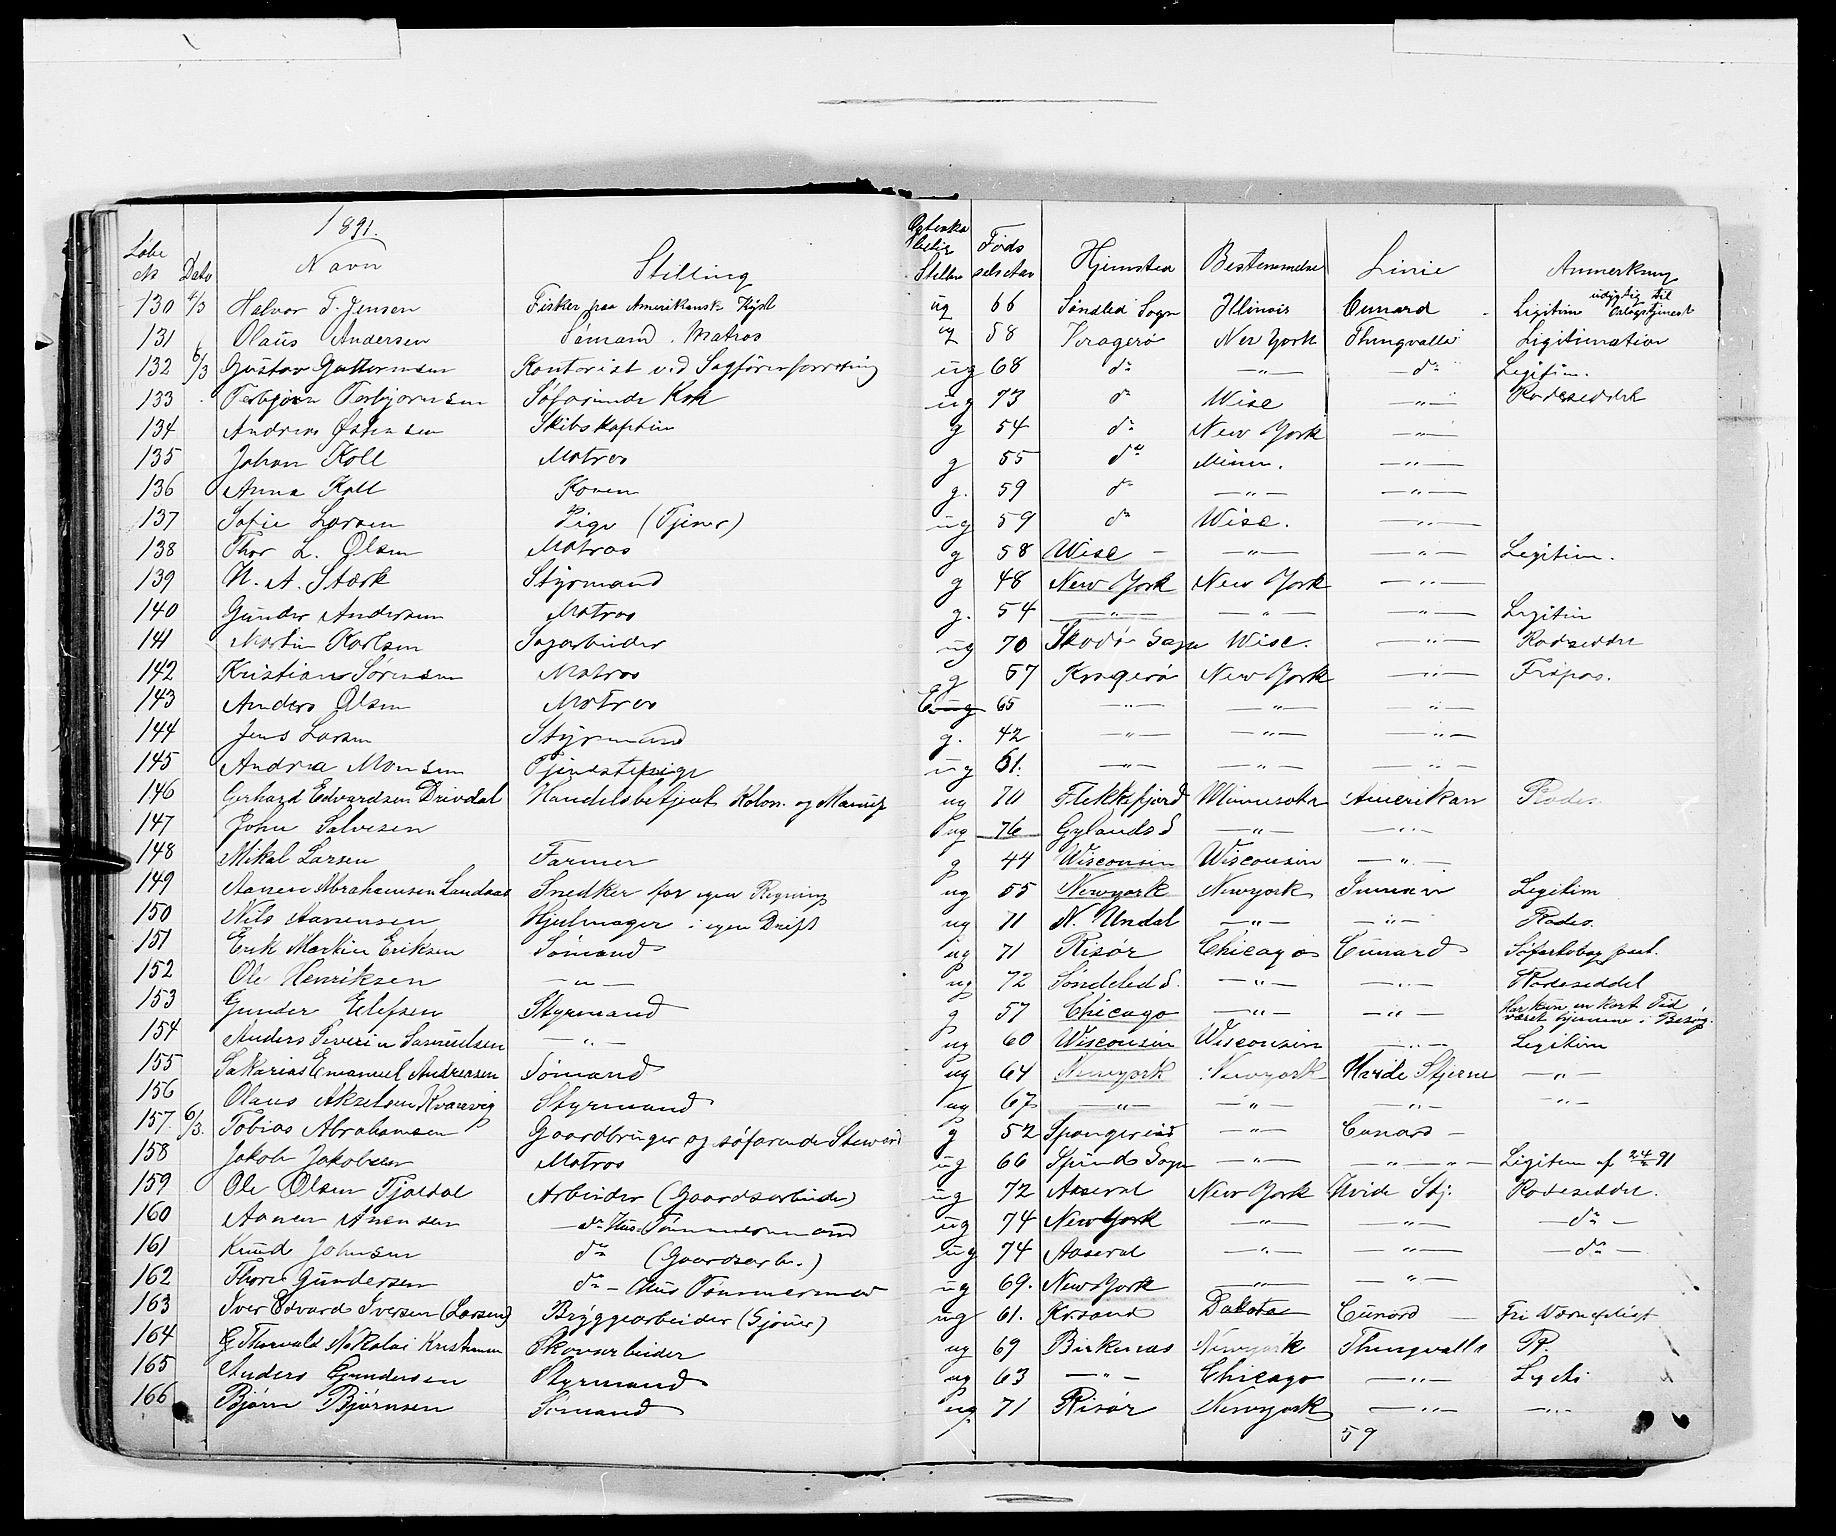 1891.
Løbe № Dato Navn Stilling Ægteskabelig Stilling Fødselsaar Hjemsted Bestemmelse Linie Anmerkning
130 4/3 Halvor T. Jensen Fisker paa Amerikansk Kyst ug 66 Søndled Sogn Illinois Cunard Legitim udygtig til Orlogstjenest
131 Olaus Andersen Sømand. Matros ug 58 Kragerø New York Thingvalla Legitimation
132 6/3 Gustav Guttormsen Kontorist ved Sagførerforretning ug 68 do —"— —do Legitim.
133 Torbjørn Torbjørnsen Søfarende Kok ug 73 do Wisc —"— Rodeseddel
134 Andreas Østensen Skibskaptein g 54 do New York —"—
135 Johan Koll Matros g 55 do Minn. —"—
136 Anna Koll Konen g. 59 do —"— —"—
137 Sofie Larsen Pige (Tjener) ug 59 do Wisc. —"—
138 Thor L. Olsen Matros g 58 Wisc — —"— —"— Legitim.
139 N. A. Stærk Styrmand g 48 New York New York —"—
140 Gunder Andersen Matros g. 54 —"— —"— —"— Legitim
141 Martin Karlsen Sagarbeider ug 70 Skadø Sogn Wisc. —"— Rodseddel
142 Kristian Sørensen Matros g 57 Kragerø New York —"— Fripas.
143 Anders Olsen Matros 65 —"— —"— —"—
144 Jens Larsen Styrmand g. 42 —"— —"— —"—
145 Andrea Monsen Tjenestepige ug 61. —"— —"— —"—
146 Gerhard Edvardsen Drivdal Handelsbetjent Kolon. og Manuf ug 70 Flekkefjord Minnesota Amerikan Rodes.
147 John Salvesen ug 76 Gylands S —"— —"—
148 Mikal Larsen Farmer g 44 Wisconsin Wisconsin —"—
149 Aanen Abrahamsen Landaas Snedker for egen Regning ug 55 Newyork Newyork Inman Legitim
150 Nils Aanensen Hjulmager i egen Drift ug 71 N. Undal —"— —"— Rodes.
151 Erik Martin Eriksen Sømand ug 71 Risør Chicago Cunard Søfartsbog
152 Ole Henriksen —"— ug 72 Søndeled S. —"— —"— Rodeseddel
153 Gunder Elefsen Styrmand g 57 Chicago —"— —"— Har kun en kort Tid været hjemme i Besøg.
154 Anders Severin Samuelsen —"— ug 60 Wisconsin Wisconsin —"— Legitim
155 Sakarias Emanuel Andreasen Sømand ug 64 Newyork Newyork Hvide Stjerne —"—
156 Olaus Akselsen Kvanvig Styrmand ug 67 —"— —"— —"— —"—
157. 6/3. Tobias Abrahamsen Gaardbruger og søfarende Steward g 52 Spangereid —"— Cunard —
158 Jakob Jakobsen Matros ug 66 Spinds Sogn —"— —"—"— Legitim af 24/2 91
159 Ole Olsen Tjaldal Arbeider (Gaardsarbeider) ug 72 Aaseral New York Hvide Stj. Rodeseddel.
160 Aanen Anensen —do Hus Tømmermand ug 74 New York —"— —"— —do—
161 Knud Johnsen do (Gaardsarb.) ug 74 Aaseral —"— —"— —do—
162 Thore Gundersen do — Hus Tømmermand ug 69. New York —"— —"—
163 Iver Edvard Iversen (Larsen) Bryggearbeider (Sjouer) ug 61. Krsand Dakota Cunard — Fri Værnepligt
164 G Thorvald Nikolai Kristensen Skovarbeider ug 69 Birkenæs Newyork Thingvalla
165 Anders Gundersen Styrmand ug 63 —"— Chicago —"—
166 Bjørn Bjørnsen Sømand ug 71 Risør Newyork —"— —"—
59